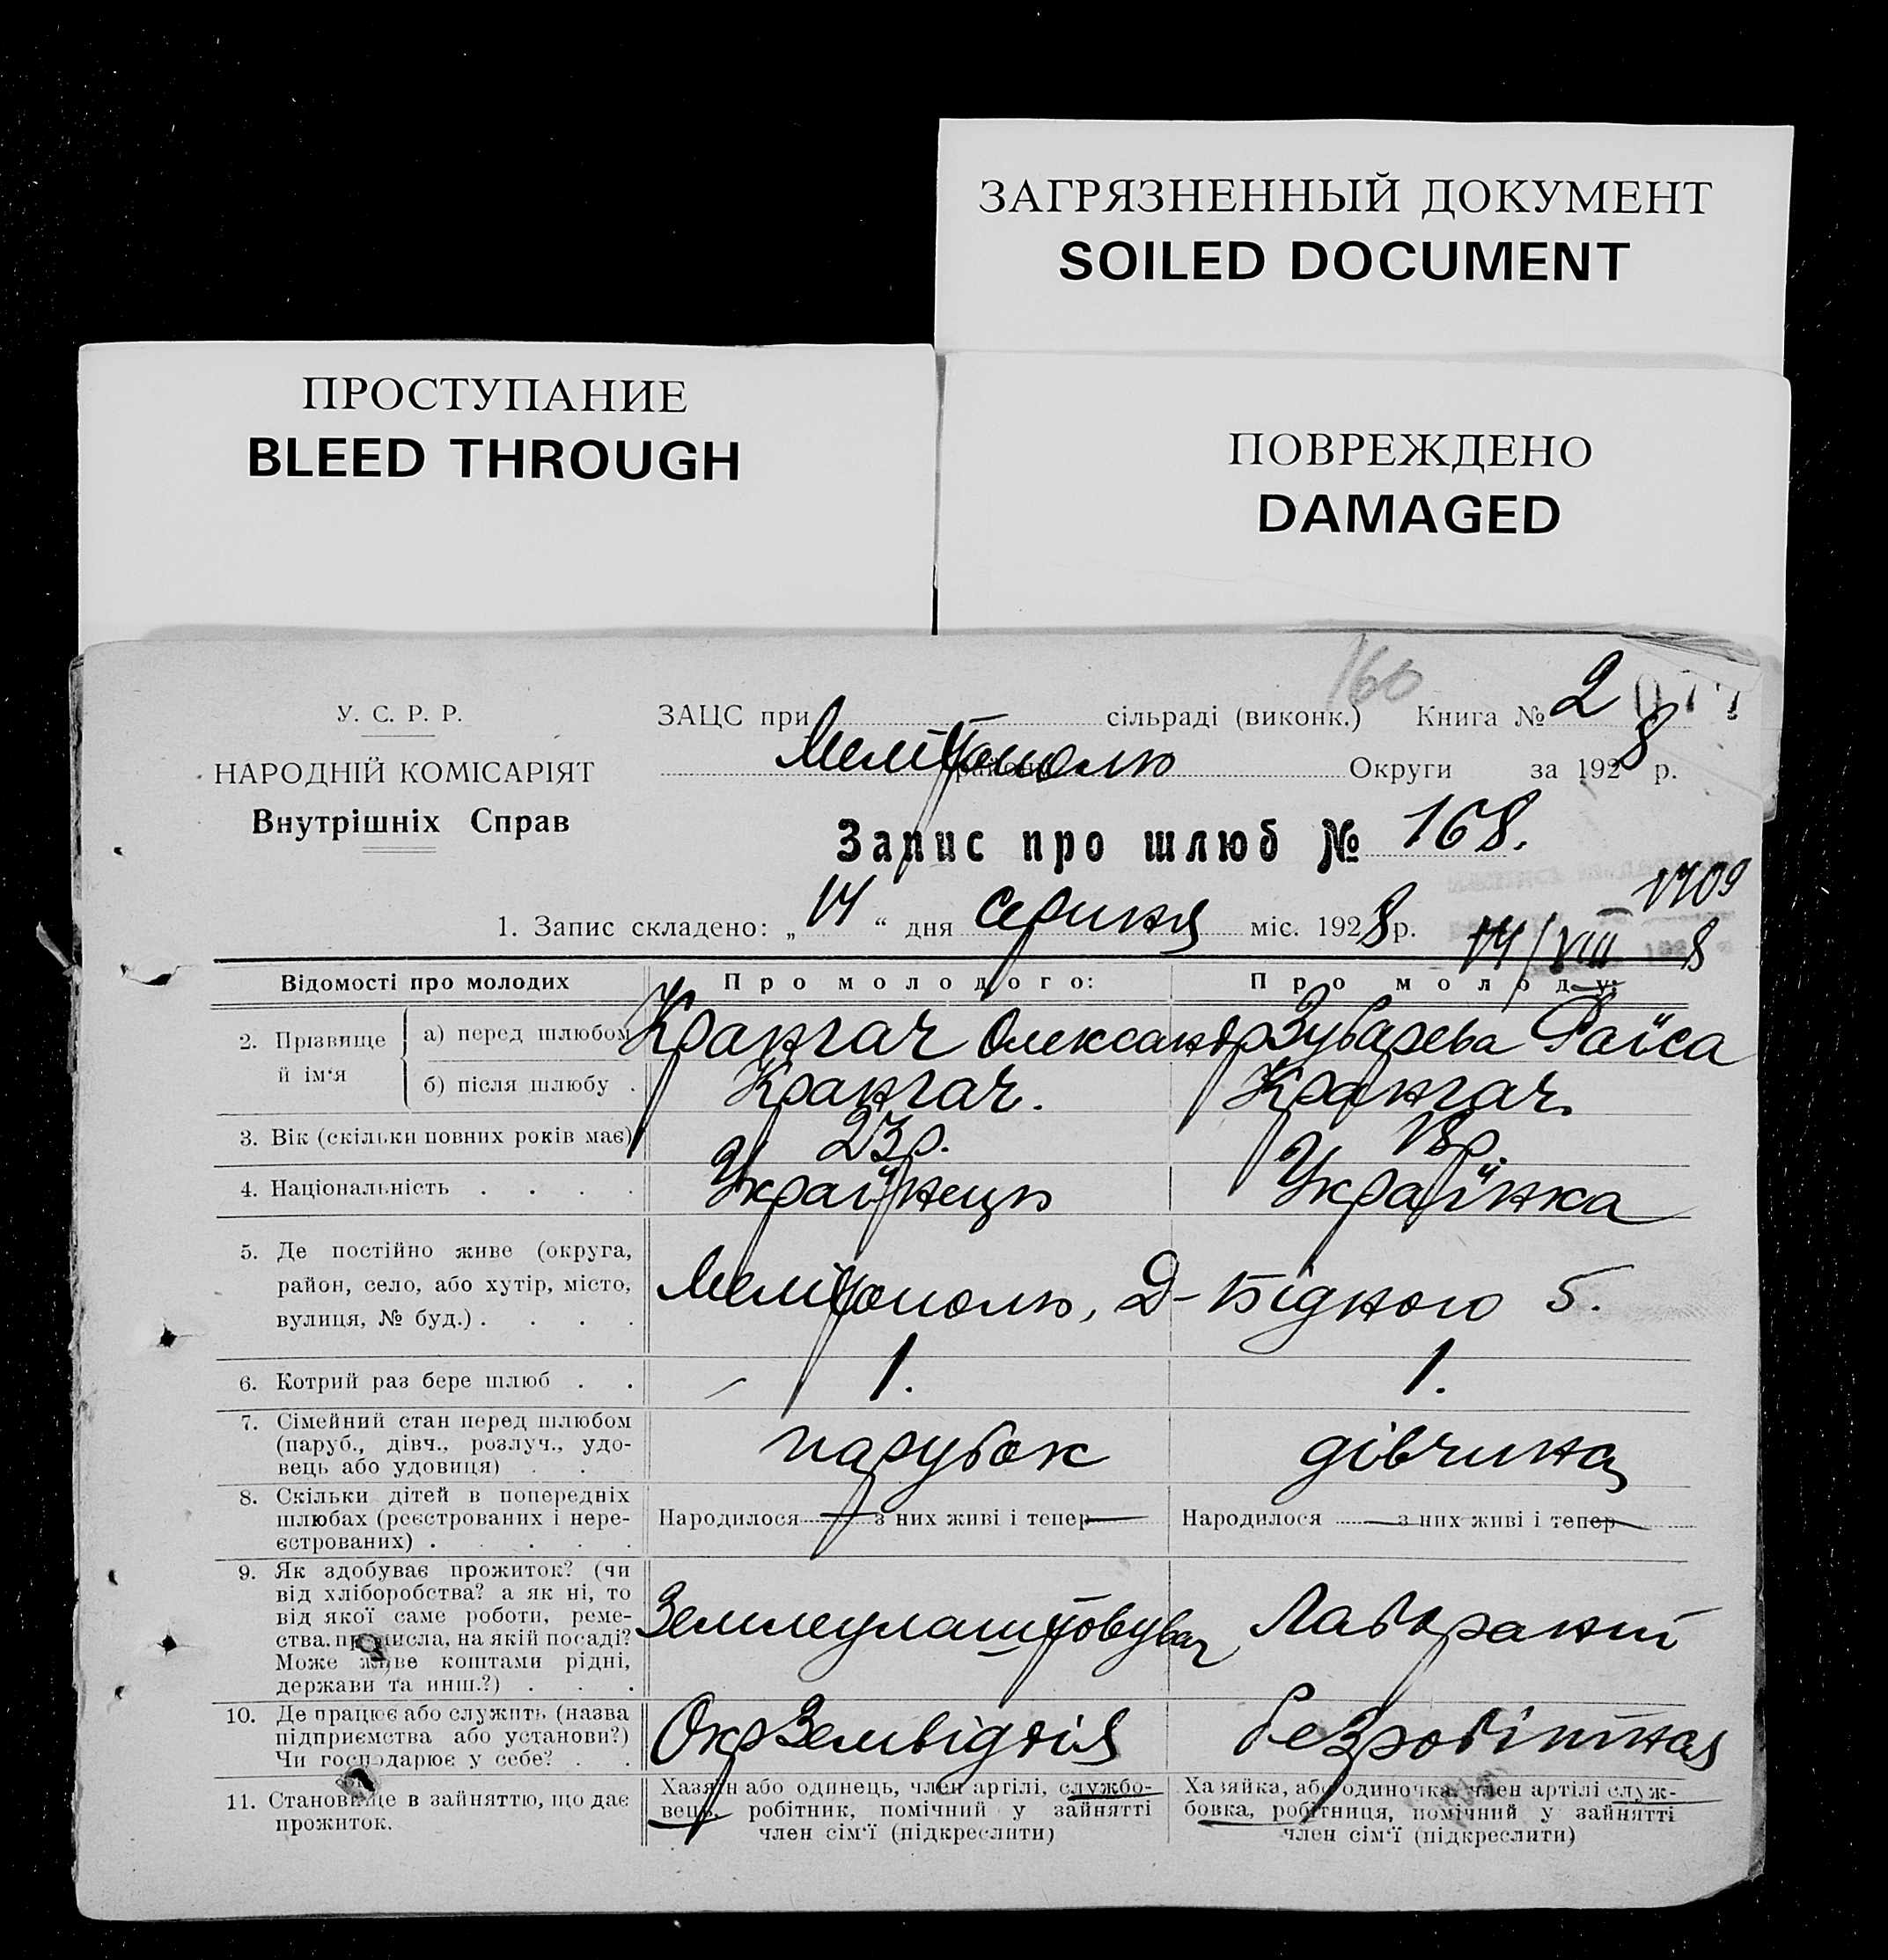 ЗАГРЯЗНЕННЫЙ ДОКУМЕНТ
SOILED DOCUMENT
ПРОСТУПАНИЕ
BLEED THROUGH
ПОВРЕЖДЕНО
DAMAGED
160
У. С. Р. Р.
НАРОДНІЙ КОМІСАРІЯТ
Внутрішніх Справ
ЗАЦС при сільраді (виконк.) Книга № 2
Мелітополь Округи за 1928 р.
Запис про шлюб № 168.
1709
1. Запис складено: „14“ дня серпня міс. 1928 р.
14/VIII 8
Відомості про молодих Про молодого: Про молоду:
2. Прізвище й ім‘я
а) перед шлюбом Крангач Олександр Зубарева Раїса
б) після шлюбу . Крангач. Крангач.
3. Вік (скільки повних років має) 23 р. 18 р.
4. Національність . . . . Українець Українка
5. Де постійно живе (округа,
район, село, або хутір, місто,
вулиця, № буд.) . . . .
Мелітополь, Д-Бідного 5.
6. Котрий раз бере шлюб . . 1. 1.
7. Сімейний стан перед шлюбом
(паруб., дівч., розлуч., удо-
вець або удовиця) . .
парубок дівчина
8. Скільки дітей в попередніх
шлюбах (реєстрованих і нере-
єстрованих) . . . . .
Народилося — з них живі і тепер — Народилося — з них живі і тепер —
9. Як здобуває прожиток? (чи
від хліборобства? а як ні, то
від якої саме роботи, реме-
ства, промисла, на якій посаді?
Може живе коштами рідні,
держави та инш.?) . . .
Землеулаштовувач Лаборант
10. Де працює або служить (назва
підприємства або установи?)
Чи господарює у себе? . .
Окрземвідділ безробітная
11. Становище в зайняттю, що дає
прожиток.
Хазяїн або одинець, член артілі, службо-
вець, робітник, помічний у зайнятті
член сім‘ї (підкреслити)
Хазяйка, або одиночка, член артілі служ-
бовка, робітниця, помічний у зайнятті
член сім‘ї (підкреслити)